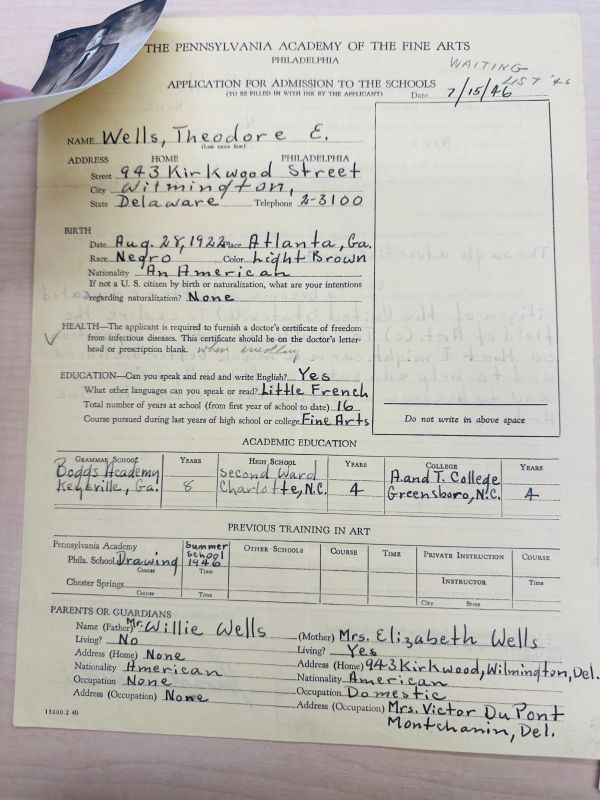 THE PENNSYLVANIA ACADEMY OF THE FINE ARTS
PHILADELPHIA
WAITING LIST '46
APPLICATION FOR ADMISSION TO THE SCHOOLS
(TO BE FILLED IN WITH INK BY THE APPLICANT)
Date 7/15/46
NAME Wells, Theodore E.
(Last name first)
ADDRESS HOME PHILADELPHIA
Street 943 Kirkwood Street
City Wilmington,
State Delaware Telephone 2-3100
BIRTH
Date Aug. 28, 1922 Place Atlanta, Ga.
Race Negro Color Light Brown
Nationality An American
If not a U. S. citizen by birth or naturalization, what are your intentions
regarding naturalization? None
HEALTH—The applicant is required to furnish a doctor's certificate of freedom
from infectious diseases. This certificate should be on the doctor's letter-
head or prescription blank. when enrolling
EDUCATION—Can you speak and read and write English? Yes
What other languages can you speak or read? Little French
Total number of years at school (from first year of school to date) 16
Course pursued during last years of high school or college Fine Arts
Do not write in above space
ACADEMIC EDUCATION
GRAMMAR SCHOOL YEARS HIGH SCHOOL YEARS COLLEGE YEARS
Boggs Academy Second Ward A. and T. College
Keysville, Ga. 8 Charlotte, N.C. 4 Greensboro, N.C. 4
PREVIOUS TRAINING IN ART
Pennsylvania Academy Summer School 1946 OTHER SCHOOLS COURSE TIME PRIVATE INSTRUCTION COURSE
Phila. School Drawing
Course Time INSTRUCTOR Time
Chester Springs
Course Time City State
PARENTS OR GUARDIANS
Name (Father) Mr. Willie Wells (Mother) Mrs. Elizabeth Wells
Living? No Living? Yes
Address (Home) None Address (Home) 943 Kirkwood, Wilmington, Del.
Nationality American Nationality American
Occupation None Occupation Domestic
Address (Occupation) None Address (Occupation) Mrs. Victor Du Pont
Montchanin, Del.
13000-2 40